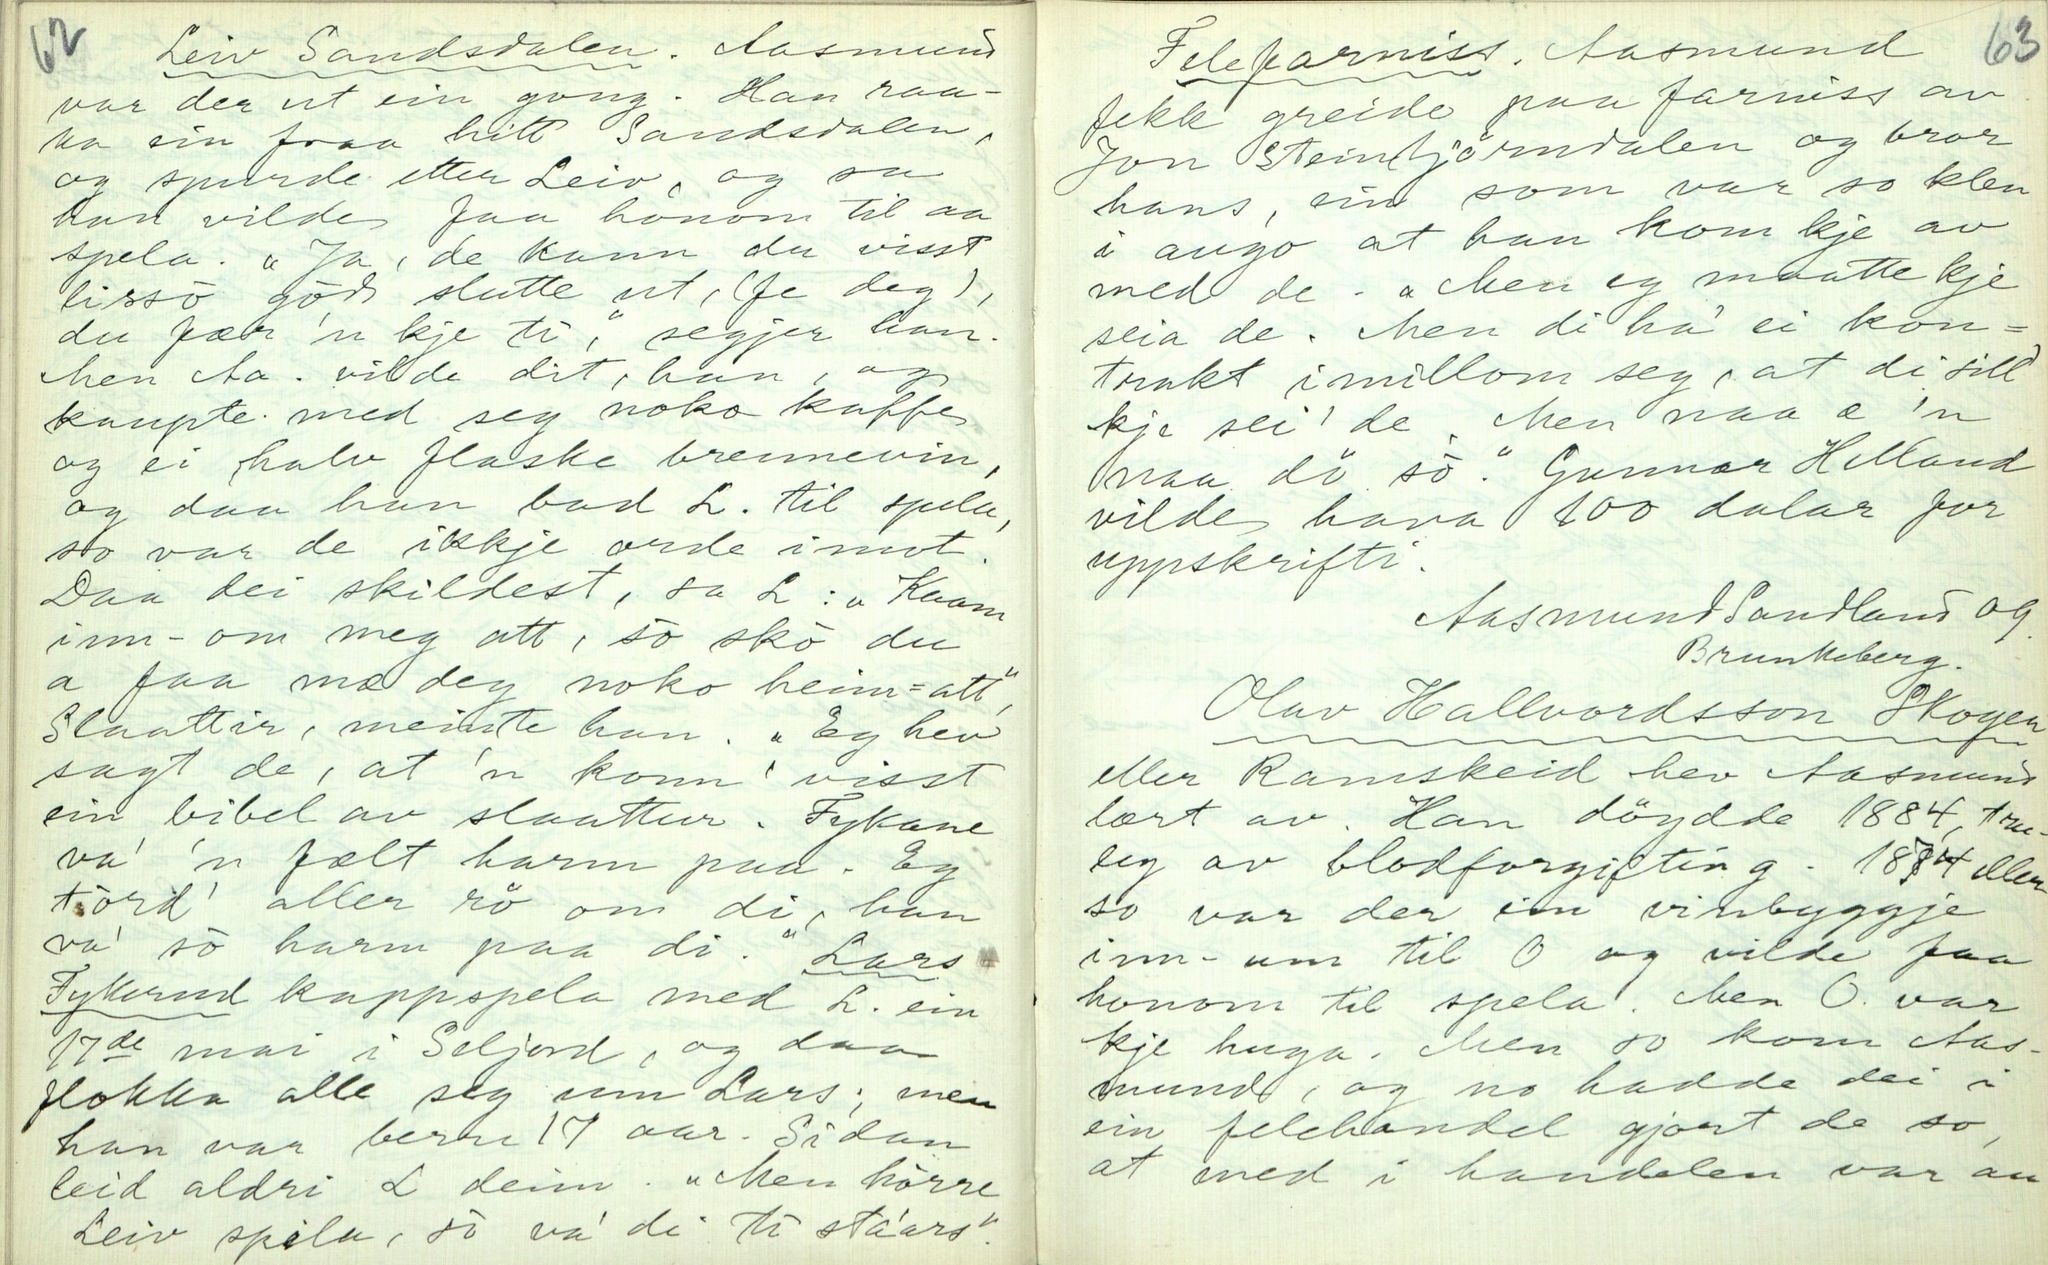 62
Leiv Sandsdalen. Aasmund
var der ut ein gong. Han raa-
ka ein fraa hitt Sandsdalen,
og spurde etter Leiv, og sa
han vilde faa honom til aa
spela. „Ja, de kann du visst
likso gödt slutte ut, (fe deg),
du fær 'n kje ti," segjer han.
Men Aa. vilde dit, han, og
kaupte med seg noko kaffe
og ei halv flaske brennevin,
og daa han bad L. til spela,
so var de ikkje orde imot.
Daa dei skildest, sa L: „Kaam
inn-om meg att, so skò du
a faa mæ deg noko heim=att,"
Slaattir, meinte han. „Eg hev
sagt de, at 'n konn' visst
ein bibel av slaattur. Fykane
va' 'n fælt harm paa. Eg
tòrd' aller rö om di, han
va' sò harm paa di." Lars
Fykerud kappspela med L. ein
17de mai i Seljord, og daa
flokka alle seg um Lars; men
han var berre 17 aar. Sidan
leid aldri L deim. „Men hörre
Leiv spila, sò va' di ti stáars".
63
Felefarniss. Aasmund
fekk greide paa farniss av
Jon Steintjörndalen og bror
hans, ein som var so klen
i augo at han kom kje av
med de. „Men eg maatte kje
seia de. Men di ha' ei kon=
trakt imillom seg, at di sill'
kje sei' de. Men naa æ 'n
naa dö sò." Gunnar Helland
vilde hava 100 dalar for
uppskrifti.
Aasmund Sandland og
Brunkeberg.
Olav Hallvordsson Skogen
eller Ramskeid hev Aasmund
lært av. Han döydde 1884, tru-
leg av blodforgifting. 1874 eller
so var der ein vinbyggje
inn-um til O og vilde faa
honom til spela. Men O. var
kje huga. Men so kom Aas-
mund, og no hadde dei i
ein felehandel gjort de so,
at med i handelen var au